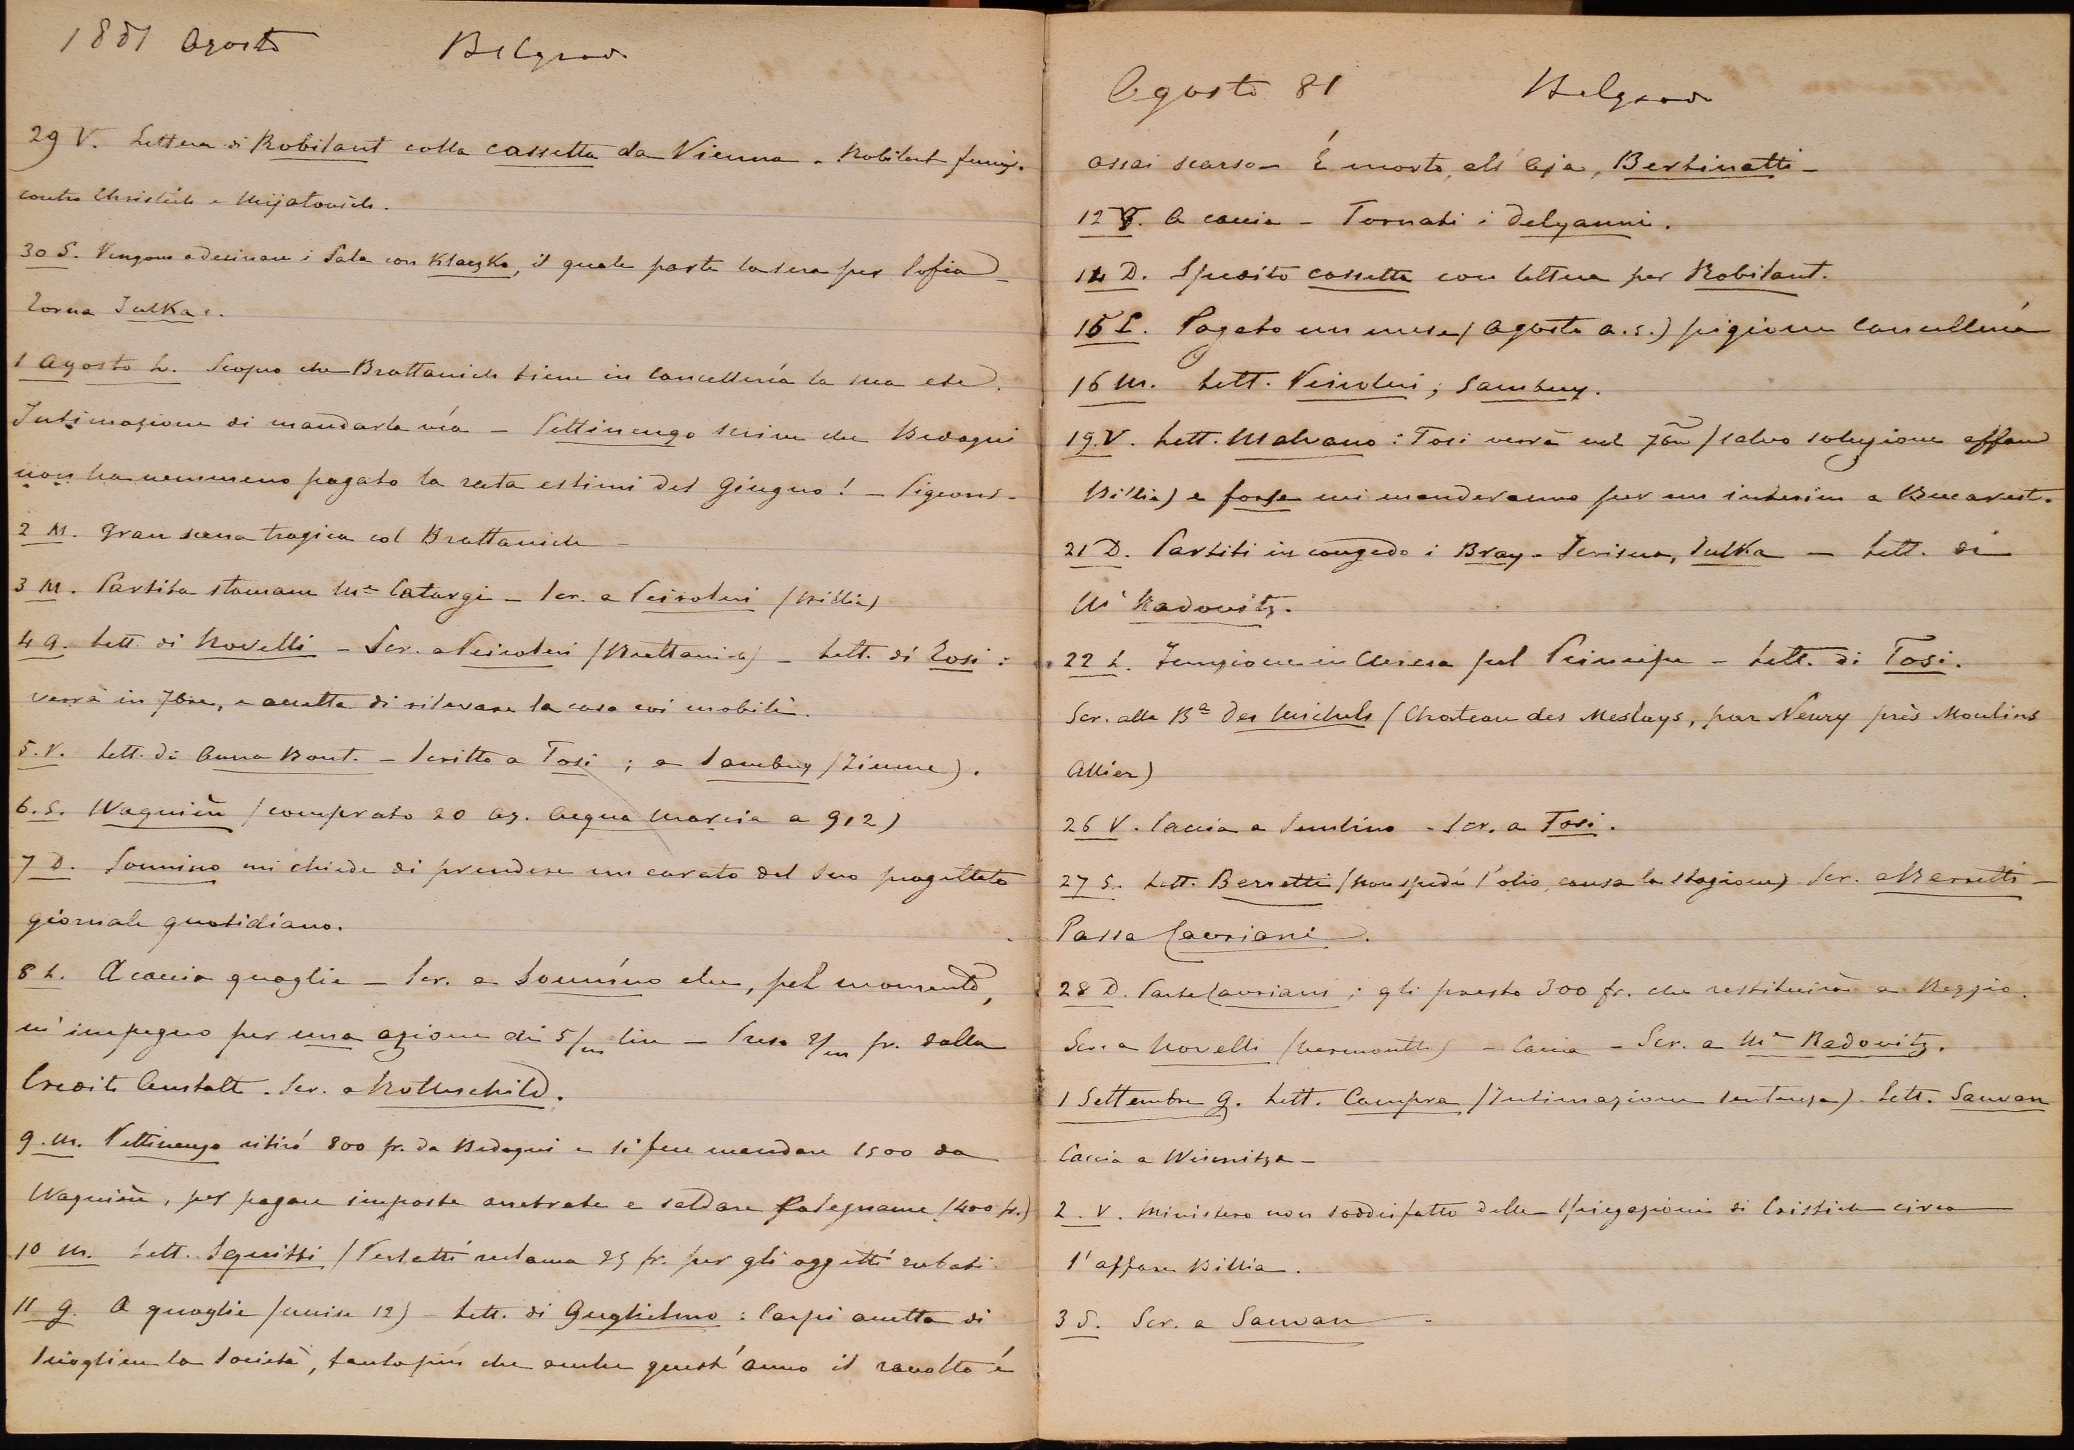 1881 Agosto Belgrado
29 V. Lettera di Robilant colla cassetta da Vienna - Robilant
contro Christich e Mijatovich.
30 S. Vengono a desinare i Sala con Klaczko, il quale parte la sera per Sofia -
Torna Julka.
1 Agosto L. Scopro che Brattanich tiene in Cancelleria la sua
Intimazione di mandarla via - Pettinengo scrive che Bedogni
non ha nemmeno pagato la rata estimi del Giugno! -
2 M. Gran scena tragica col Brattanich -
3 M. Partita stamane Me Catargi - Scr. a Peiroleri (Billia)
4 G. Lett. di Novelli - Scr. a Peiroleri (Brattanich) - Lett. di Tosi:
verrà in 7bre, e accetta di rilevare la casa coi mobili.
5. V. Lett. di Anna - Scritto a Tosi; a Sambuy (Fiume).
6. S. Wagnière (comprato 20 Az. Acqua Marcia a 912)
7 D. Sonnino mi chiede di prendere un carato del suo progettato
giornale quotidiano.
8 L. A caccia quaglie - Scr. a Sonnino che, pel momento,
m'impegno per una azione di 5/m lire - Preso 2/m fr. dalla
Credit Anstalt - Scr. a Rothschild.
9. M. Pettinengo ritirò 800 fr. da Bedogni e si fece mandare 1500 da
Wagnière, per pagare imposte arretrate e saldare falegname (400 fr.)
10 M. Lett. Squitti (Perlatti reclama 25 fr. per gli oggetti rubati
11 G. A quaglie (uccise 12) - Lett. di Guglielmo: Carpi accetta di
sciogliere la Società, tanto più che anche quest'anno il raccolto è
Agosto 81 Belgrado
assai scarso - È morto, all'Aja, Bertinatti -
12 V. A caccia - Tornati i Delyanni.
14 D. Spedito cassetta con lettera per Robilant.
15 L. Pagato un mese (Agosto a.s.) pigione Cancelleria
16 M. Lett. Peiroleri; Sambuy.
19. V. Lett. Malvano: Tosi verrà nel 7bre (salvo soluzione affare
Billia) e forse mi manderanno per un interim a Bucarest.
21 D. Partiti in congedo i Bray - Julka - Lett. di
Me Radovitz.
22 L. Funzione in Chiesa pel Principe - Lett. di Tosi.
Scr. alla Ba Des Michels (Chateau des Meslays, par Neury près Moulins
Allier)
26 V. Caccia a Semlino - Scr. a Tosi.
27 S. Lett. Berretti (non spedì l'olio, causa la stagione) Scr. a Berretti -
Passa Cavriani.
28 D. Parte Cavriani; gli presto 300 fr. che restituirà a Reggio.
Scr. a Novelli (Vermouth) - Caccia - Scr. a Me Radovitz.
1 Settembre G. Lett. Campra (Intimazione sentenza) Lett. Sauvan
Caccia a Wisnitza -
2. V. Ministero non soddisfatto delle spiegazioni di Cristich circa
l'affare Billia.
3 S. Scr. a Sauvan